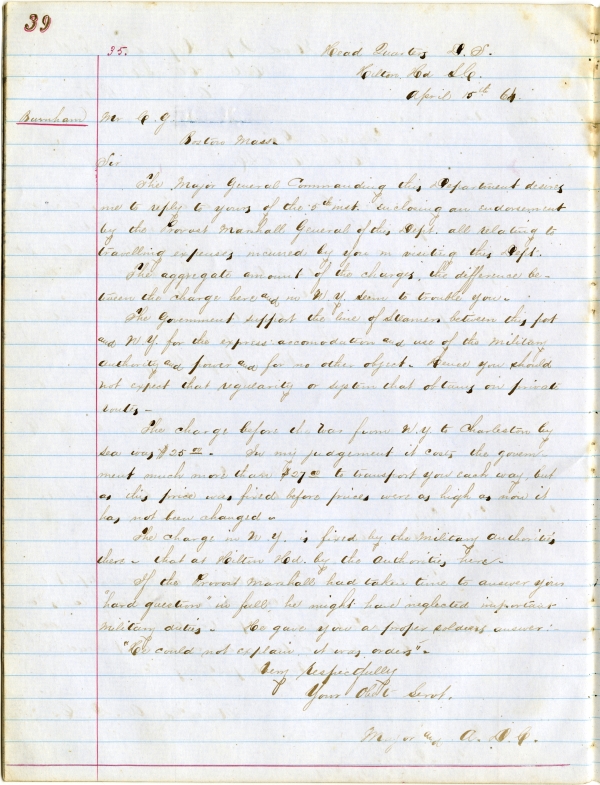 39
35.
Head Quarters D. S.
Hilton Hd S.C.
April 15th 64.
Burnham Mr C. G.
Boston Mass
Sir
The Major General Commanding this Department desires
me to reply to yours of the 5th inst. enclosing an endorsement
by the Provost Marshall General of this Dept. all relating to
travelling expenses incurred by you in visiting this Dept.
The aggregate amount of the charges, the difference be-
tween the charge here and in N. Y. seem to trouble you.
The Government support the line of Steamers between this port
and N. Y. for the express accomodation and use of the Military
authority and power and for no other object. Hence you should
not expect that regularity or system that obtains on private
routes.
The charge before the War from N. Y. to Charleston by
sea was $25.00. In my judgement it costs the govern-
ment much more than $27.00 to transport you each way, but
as this price was fixed before prices were as high as now it
has not been changed.
The charge in N. Y. is fixed by the Military Authorities
there - that at Hilton Hd. by the Authorities here.
If the Provost Marshall had taken time to answer your
"hard question" in full he might have neglected important
Military duties. He gave you a proper soldiers answer.
"He could not explain, it was orders".
Very Respectfully
Your Obt Servt.
Major and A. D. C.